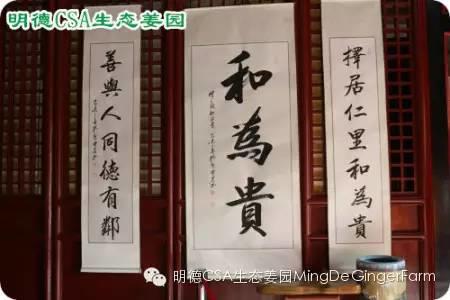 明德CSA生态姜园
擇居仁里和為貴
和為貴
善與人同德有鄰
明德CSA生态姜园MingDeGingerFarm